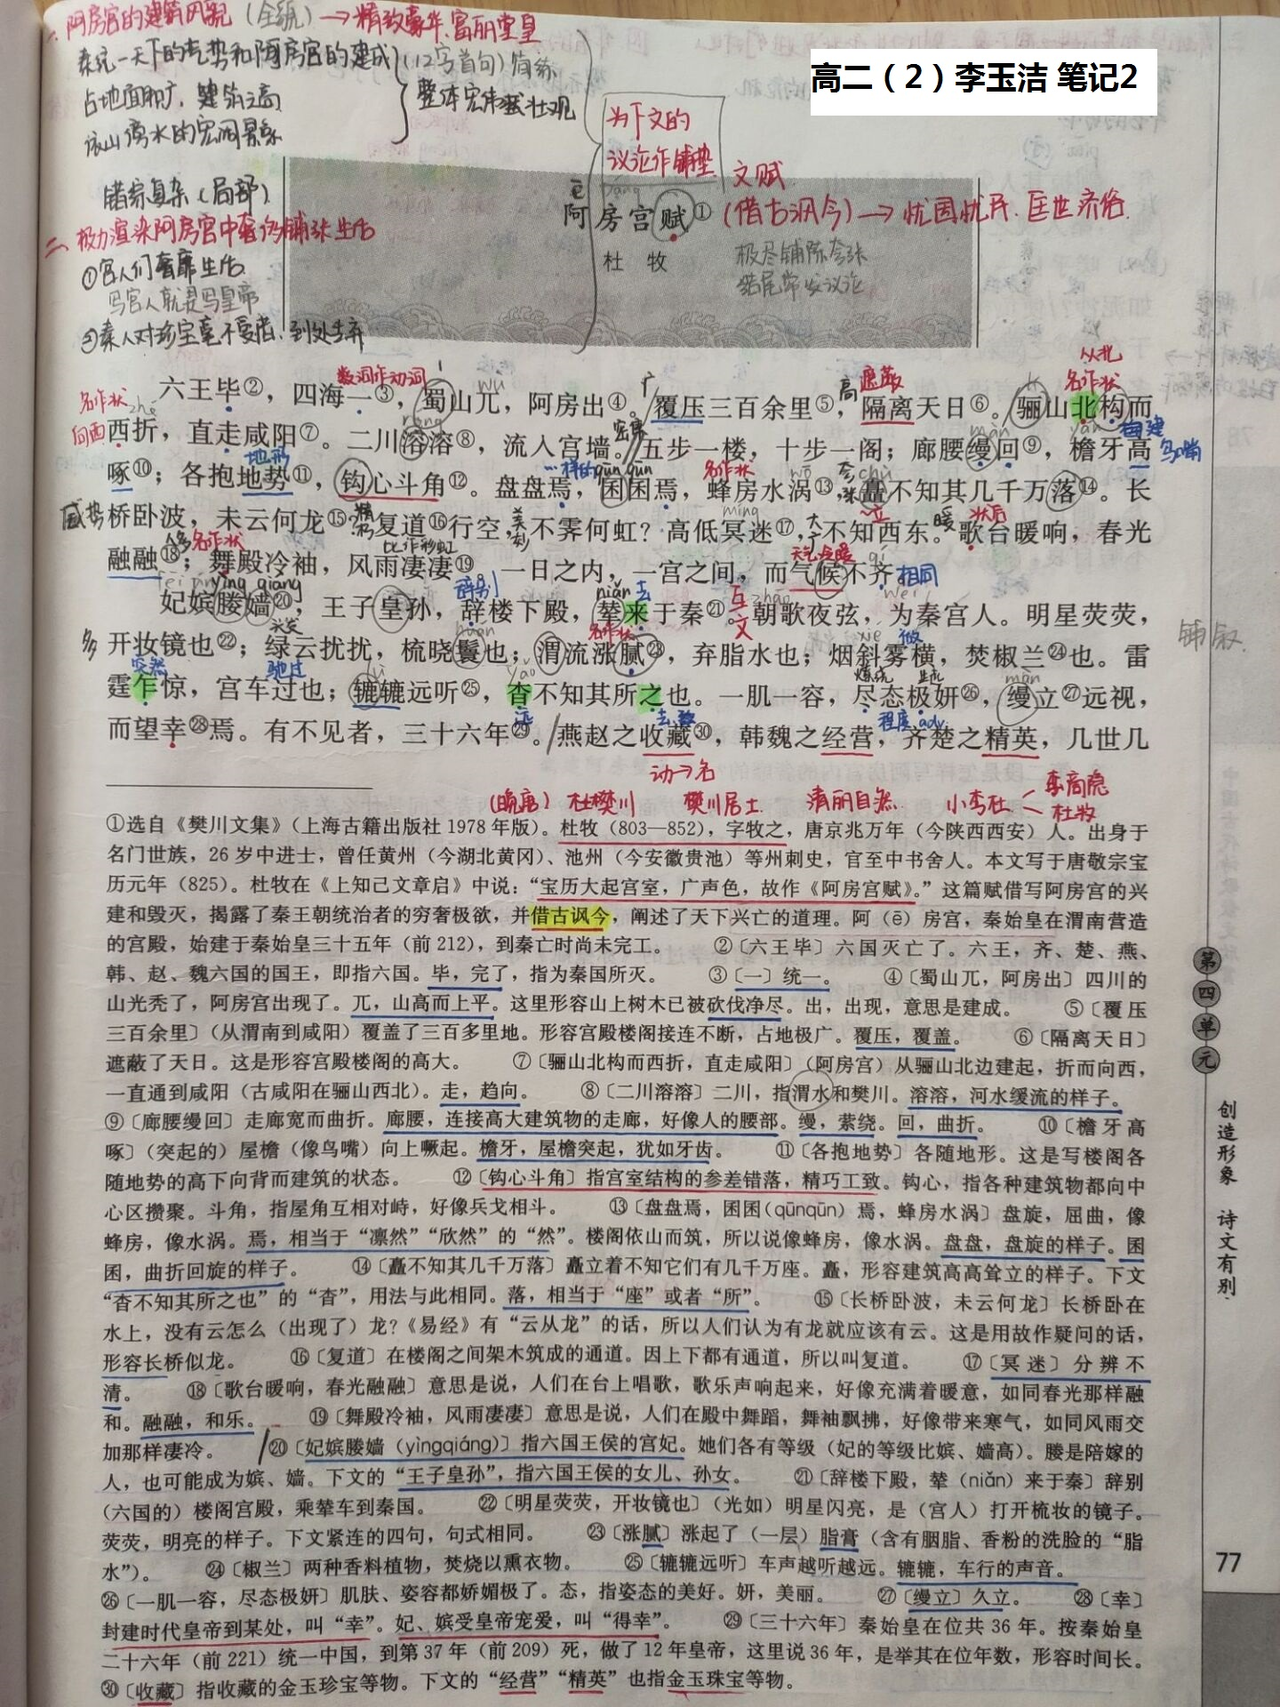 高二（2）李玉洁 笔记2
一、阿房宫的建筑风貌（全貌）→精致豪华、富丽堂皇
秦统一天下的气势和阿房宫的建成
占地面积广，建筑之高
依山傍水的宏阔景象
（12字首句）简练
整体宏伟壮观
错综复杂（局部）
二、极力渲染阿房宫中奢侈铺张生活
①宫人们奢靡生活
写宫人就是写皇帝
②秦人对珍宝毫不爱惜、到处丢弃
为下文的
议论作铺垫
文赋
ē
阿房宫赋①
（借古讽今）→忧国忧民、匡世济俗
杜 牧
极尽铺陈夸张
结尾常发议论
六王毕②，四海一③，蜀山兀，阿房出④。覆压三百余里⑤，隔离天日⑥。骊山北构而
西折，直走咸阳⑦。二川溶溶⑧，流入宫墙。五步一楼，十步一阁；廊腰缦回⑨，檐牙高
啄⑩；各抱地势⑪，钩心斗角⑫。盘盘焉，囷囷焉，蜂房水涡⑬，矗不知其几千万落⑭。长
桥卧波，未云何龙⑮？复道⑯行空，不霁何虹？高低冥迷⑰，不知西东。歌台暖响，春光
融融⑱；舞殿冷袖，风雨凄凄⑲。一日之内，一宫之间，而气候不齐。
妃嫔媵嫱⑳，王子皇孙，辞楼下殿，辇来于秦㉑。朝歌夜弦，为秦宫人。明星荧荧，
开妆镜也㉒；绿云扰扰，梳晓鬟也；渭流涨腻㉓，弃脂水也；烟斜雾横，焚椒兰㉔也。雷
霆乍惊，宫车过也；辘辘远听㉕，杳不知其所之也。一肌一容，尽态极妍㉖，缦立㉗远视，
而望幸㉘焉。有不见者，三十六年㉙。燕赵之收藏㉚，韩魏之经营，齐楚之精英，几世几
铺叙
名作状
向西
数词作动词
遮蔽
从北
名作状
构建
鸟嘴
地形
名作状
状后
名作状
比作彩虹
天气冷暖
相同
辞别
互文
名作状
突然
驰过
去、到
程度adv.
动→名
（晚唐） 杜樊川 樊川居士 清丽自然 小李杜
李商隐
杜牧
①选自《樊川文集》（上海古籍出版社 1978 年版）。杜牧（803—852），字牧之，唐京兆万年（今陕西西安）人。出身于
名门世族，26 岁中进士，曾任黄州（今湖北黄冈）、池州（今安徽贵池）等州刺史，官至中书舍人。本文写于唐敬宗宝
历元年（825）。杜牧在《上知己文章启》中说：“宝历大起宫室，广声色，故作《阿房宫赋》。”这篇赋借写阿房宫的兴
建和毁灭，揭露了秦王朝统治者的穷奢极欲，并借古讽今，阐述了天下兴亡的道理。阿（ē）房宫，秦始皇在渭南营造
的宫殿，始建于秦始皇三十五年（前 212），到秦亡时尚未完工。 ②〔六王毕〕六国灭亡了。六王，齐、楚、燕、
韩、赵、魏六国的国王，即指六国。毕，完了，指为秦国所灭。 ③〔一〕统一。 ④〔蜀山兀，阿房出〕四川的
山光秃了，阿房宫出现了。兀，山高而上平。这里形容山上树木已被砍伐净尽。出，出现，意思是建成。 ⑤〔覆压
三百余里〕（从渭南到咸阳）覆盖了三百多里地。形容宫殿楼阁接连不断，占地极广。覆压，覆盖。 ⑥〔隔离天日〕
遮蔽了天日。这是形容宫殿楼阁的高大。 ⑦〔骊山北构而西折，直走咸阳〕（阿房宫）从骊山北边建起，折而向西，
一直通到咸阳（古咸阳在骊山西北）。走，趋向。 ⑧〔二川溶溶〕二川，指渭水和樊川。溶溶，河水缓流的样子。
⑨〔廊腰缦回〕走廊宽而曲折。廊腰，连接高大建筑物的走廊，好像人的腰部。缦，萦绕。回，曲折。 ⑩〔檐牙高
啄〕（突起的）屋檐（像鸟嘴）向上噘起。檐牙，屋檐突起，犹如牙齿。 ⑪〔各抱地势〕各随地形。这是写楼阁各
随地势的高下向背而建筑的状态。 ⑫〔钩心斗角〕指宫室结构的参差错落，精巧工致。钩心，指各种建筑物都向中
心区攒聚。斗角，指屋角互相对峙，好像兵戈相斗。 ⑬〔盘盘焉，囷囷（qūnqūn）焉，蜂房水涡〕盘旋，屈曲，像
蜂房，像水涡。焉，相当于“凛然”“欣然”的“然”。楼阁依山而筑，所以说像蜂房，像水涡。盘盘，盘旋的样子。囷
囷，曲折回旋的样子。 ⑭〔矗不知其几千万落〕矗立着不知它们有几千万座。矗，形容建筑高高耸立的样子。下文
“杳不知其所之也”的“杳”，用法与此相同。落，相当于“座”或者“所”。 ⑮〔长桥卧波，未云何龙〕长桥卧在
水上，没有云怎么（出现了）龙？《易经》有“云从龙”的话，所以人们认为有龙就应该有云。这是用故作疑问的话，
形容长桥似龙。 ⑯〔复道〕在楼阁之间架木筑成的通道。因上下都有通道，所以叫复道。 ⑰〔冥迷〕分辨不
清。 ⑱〔歌台暖响，春光融融〕意思是说，人们在台上唱歌，歌乐声响起来，好像充满着暖意，如同春光那样融
和。融融，和乐。 ⑲〔舞殿冷袖，风雨凄凄〕意思是说，人们在殿中舞蹈，舞袖飘拂，好像带来寒气，如同风雨交
加那样凄冷。 ⑳〔妃嫔媵嫱（yìngqiáng）〕指六国王侯的宫妃。她们各有等级（妃的等级比嫔、嫱高）。媵是陪嫁的
人，也可能成为嫔、嫱。下文的“王子皇孙”，指六国王侯的女儿、孙女。 ㉑〔辞楼下殿，辇（niǎn）来于秦〕辞别
（六国的）楼阁宫殿，乘辇车到秦国。 ㉒〔明星荧荧，开妆镜也〕（光如）明星闪亮，是（宫人）打开梳妆的镜子。
荧荧，明亮的样子。下文紧连的四句，句式相同。 ㉓〔涨腻〕涨起了（一层）脂膏（含有胭脂、香粉的洗脸的“脂
水”）。 ㉔〔椒兰〕两种香料植物，焚烧以熏衣物。 ㉕〔辘辘远听〕车声越听越远。辘辘，车行的声音。
㉖〔一肌一容，尽态极妍〕肌肤、姿容都娇媚极了。态，指姿态的美好。妍，美丽。 ㉗〔缦立〕久立。 ㉘〔幸〕
封建时代皇帝到某处，叫“幸”。妃、嫔受皇帝宠爱，叫“得幸”。 ㉙〔三十六年〕秦始皇在位共 36 年。按秦始皇
二十六年（前 221）统一中国，到第 37 年（前 209）死，做了 12 年皇帝，这里说 36 年，是举其在位年数，形容时间长。
㉚〔收藏〕指收藏的金玉珍宝等物。下文的“经营”“精英”也指金玉珠宝等物。
第四单元
创造形象 诗文有别
77